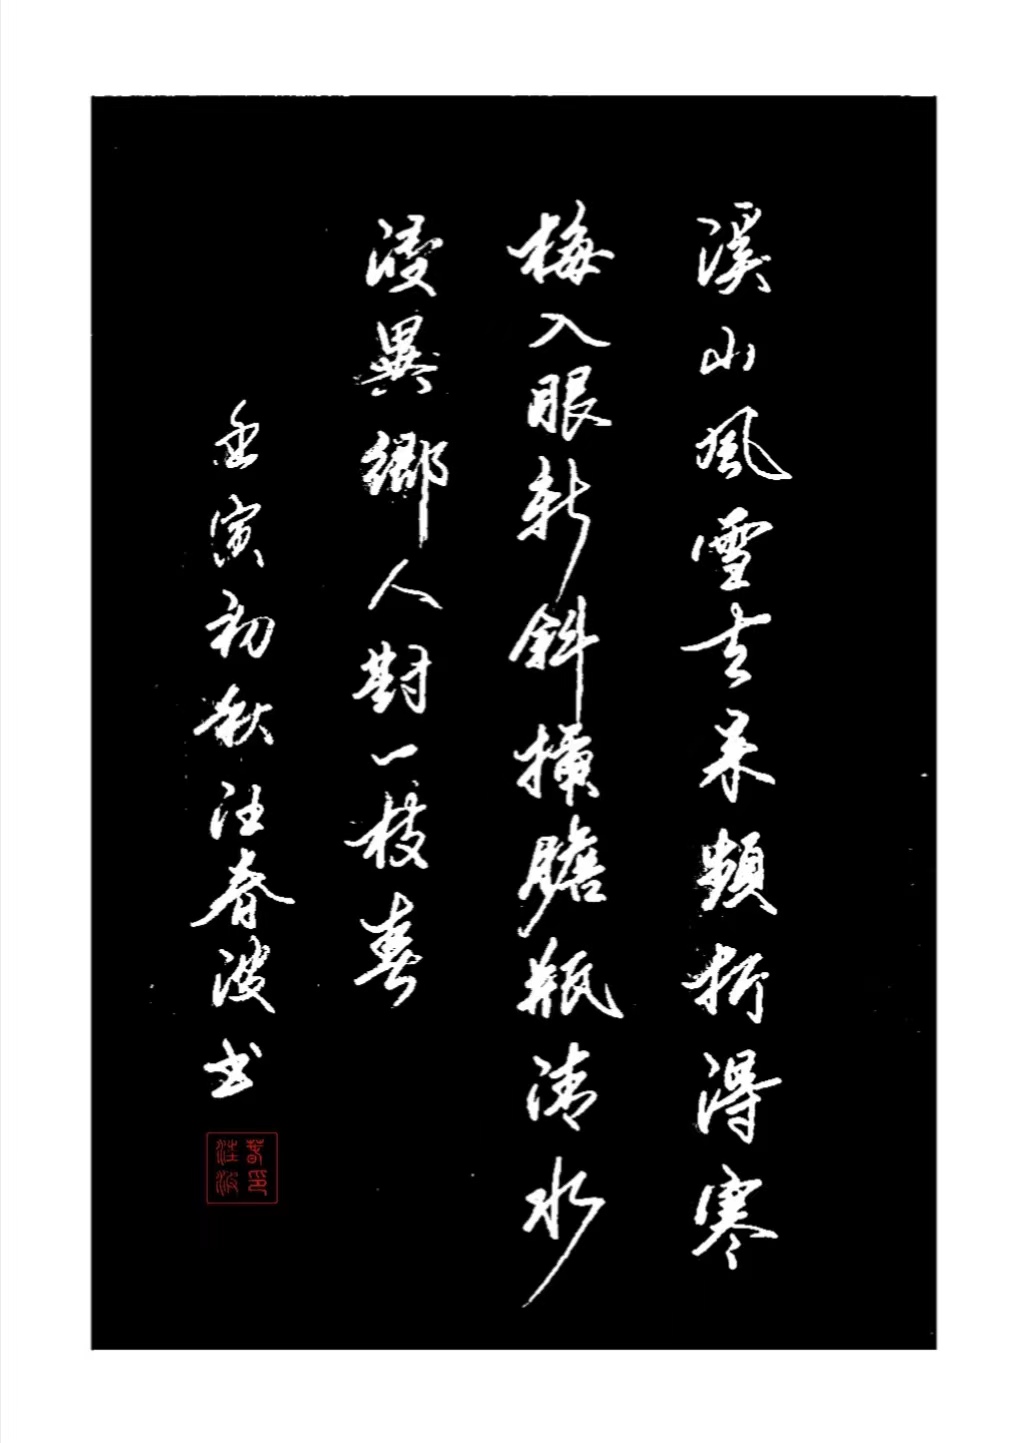 溪山風雪去来頻折得寒
梅入眼新斜插膽瓶清水
浸異鄉人對一枝春
壬寅初秋汪春波书
春印
汪波